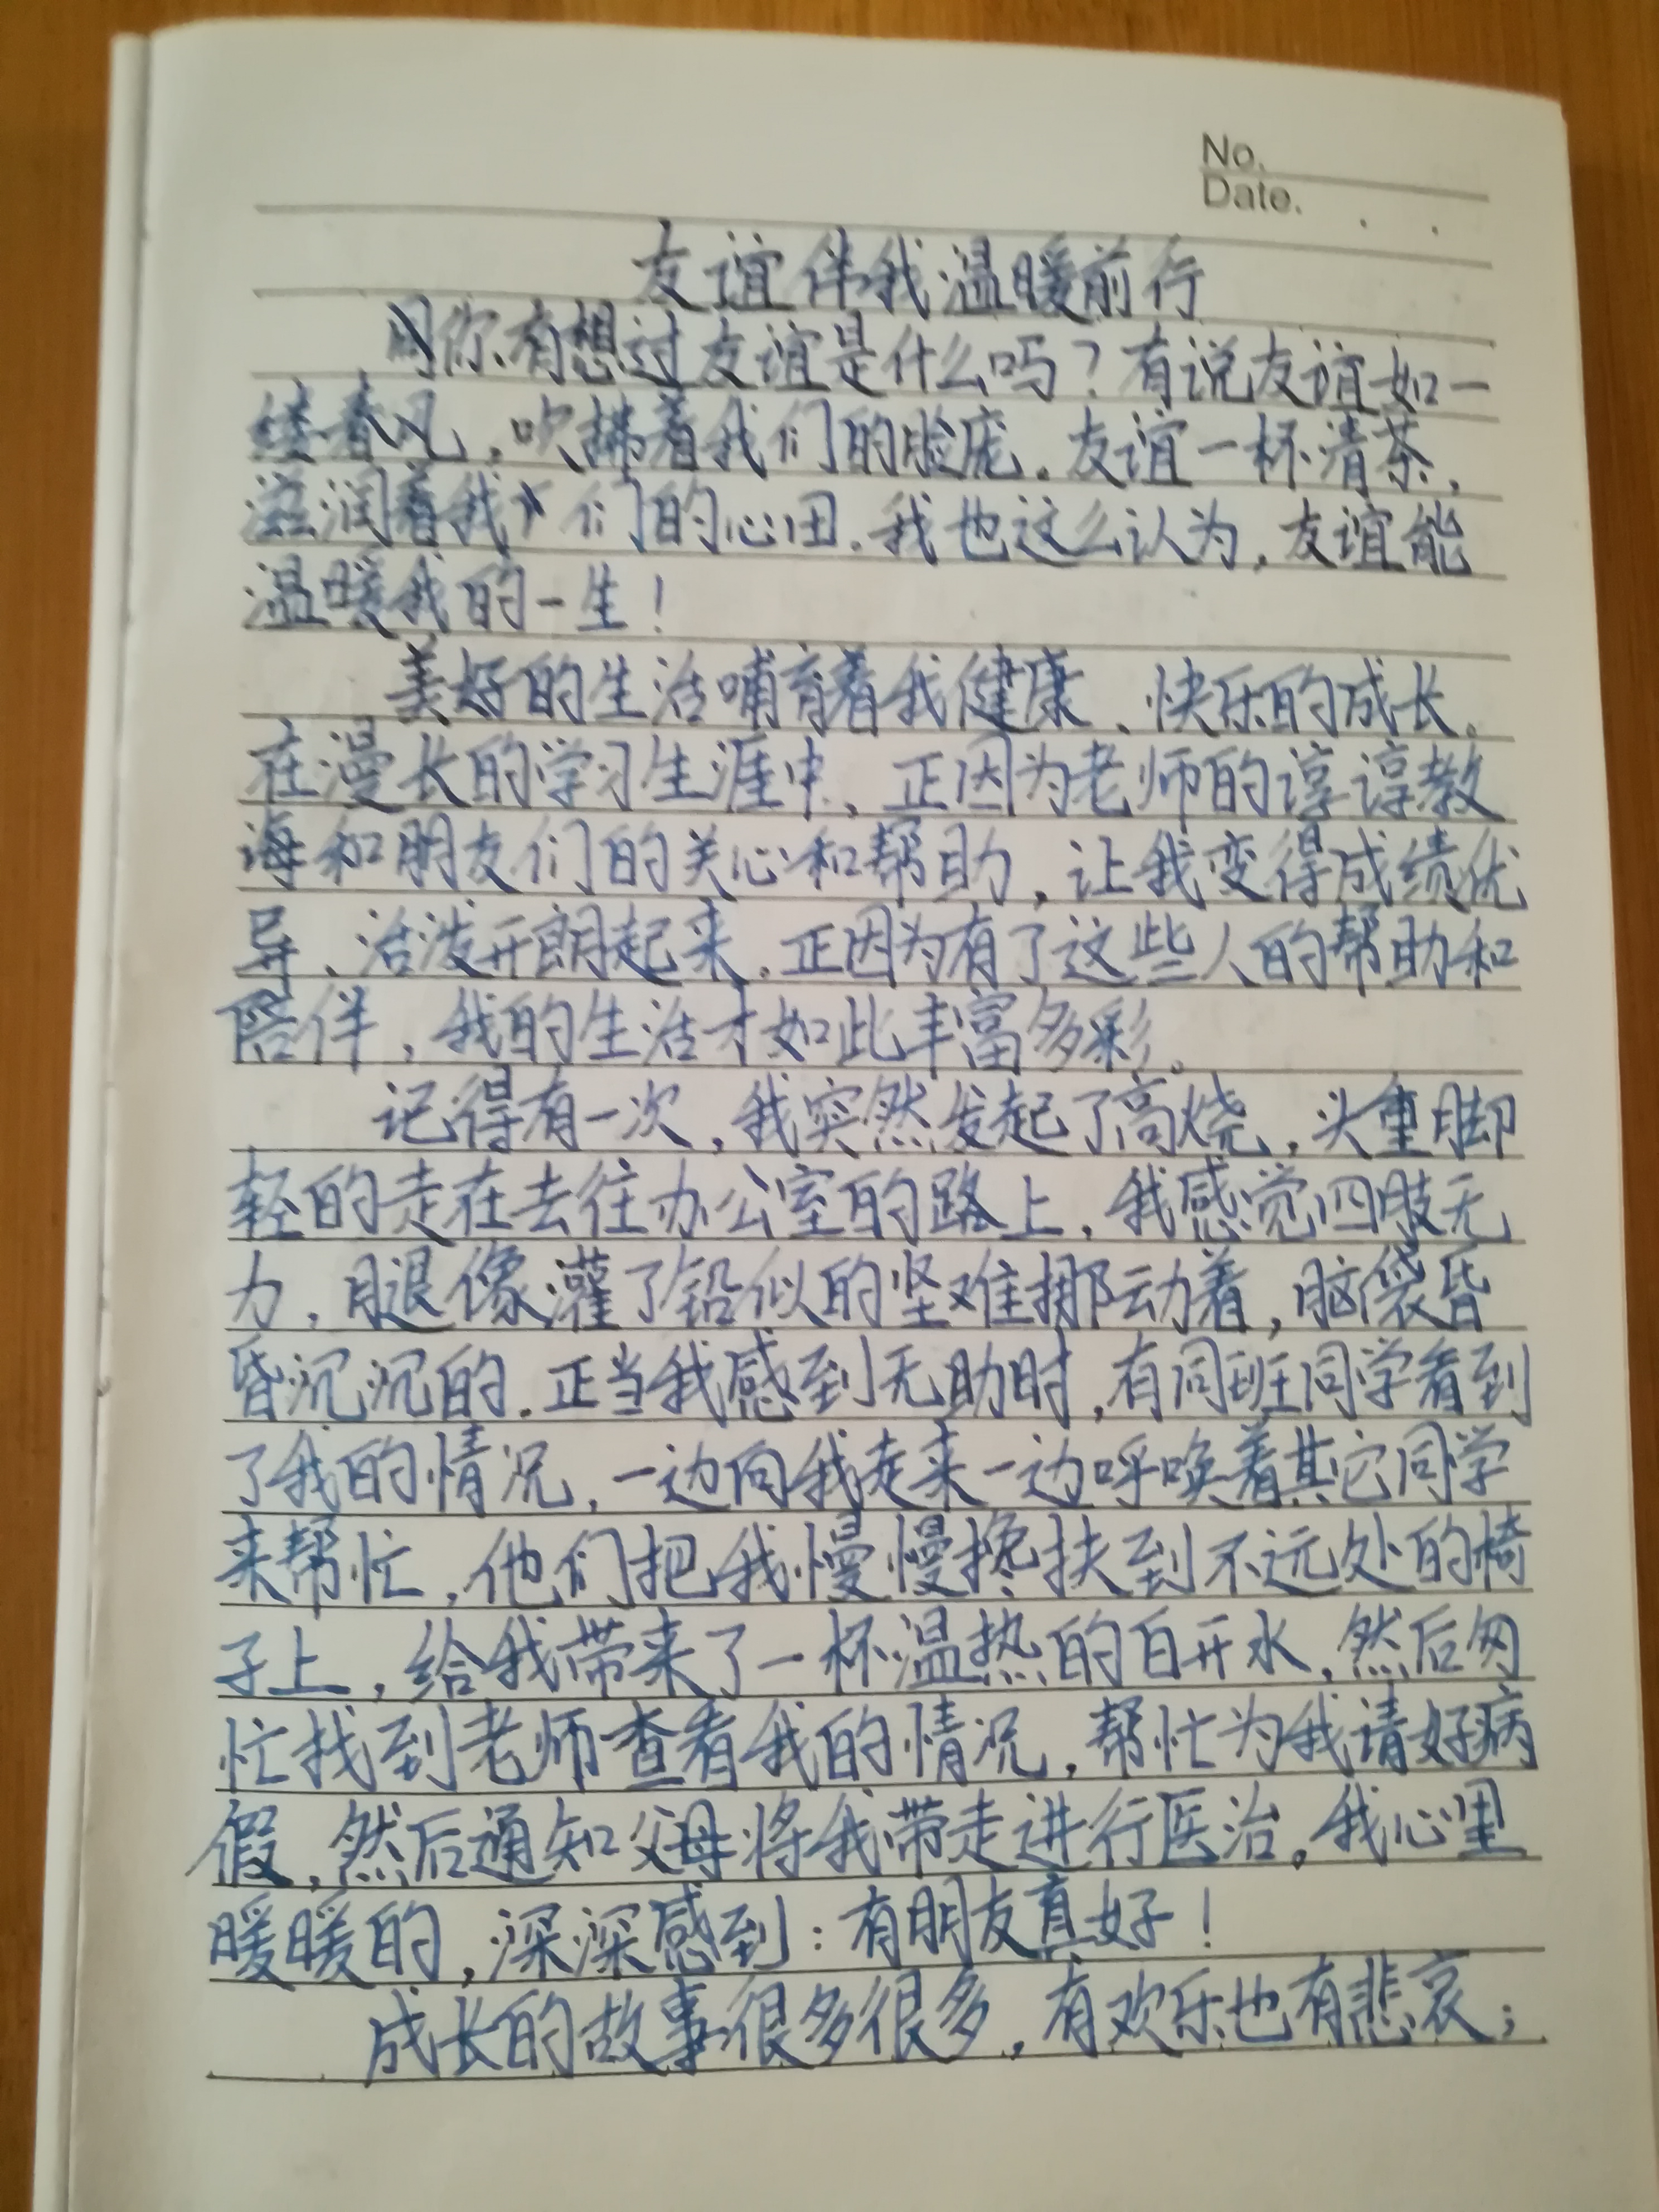 No.
Date.
友谊伴我温暖前行
你有想过友谊是什么吗?有说友谊如一
缕春风,吹拂着我们的脸庞。友谊一杯清茶,
滋润着我们的心田。我也这么认为,友谊能
温暖我的一生!
美好的生活哺育着我健康、快乐的成长。
在漫长的学习生涯中,正因为老师的谆谆教
海和朋友们的关心和帮助,让我变得成绩优
异、活泼开朗起来。正因为有了这些人的帮助和
陪伴,我的生活才如此丰富多彩。
记得有一次,我突然发起了高烧,头重脚
轻的走在去往办公室的路上,我感觉四肢无
力,腿像灌了铅似的坚难挪动着,脑袋昏
昏沉沉的。正当我感到无助时,有同班同学看到
了我的情况,一边向我走来一边呼唤着其它同学
来帮忙,他们把我慢慢搀扶到不远处的椅
子上,给我带来了一杯温热的白开水,然后匆
忙找到老师查看我的情况,帮忙为我请好病
假,然后通知父母将我带走进行医治。我心里
暖暖的,深深感到:有朋友真好!
成长的故事很多很多,有欢乐也有悲哀;